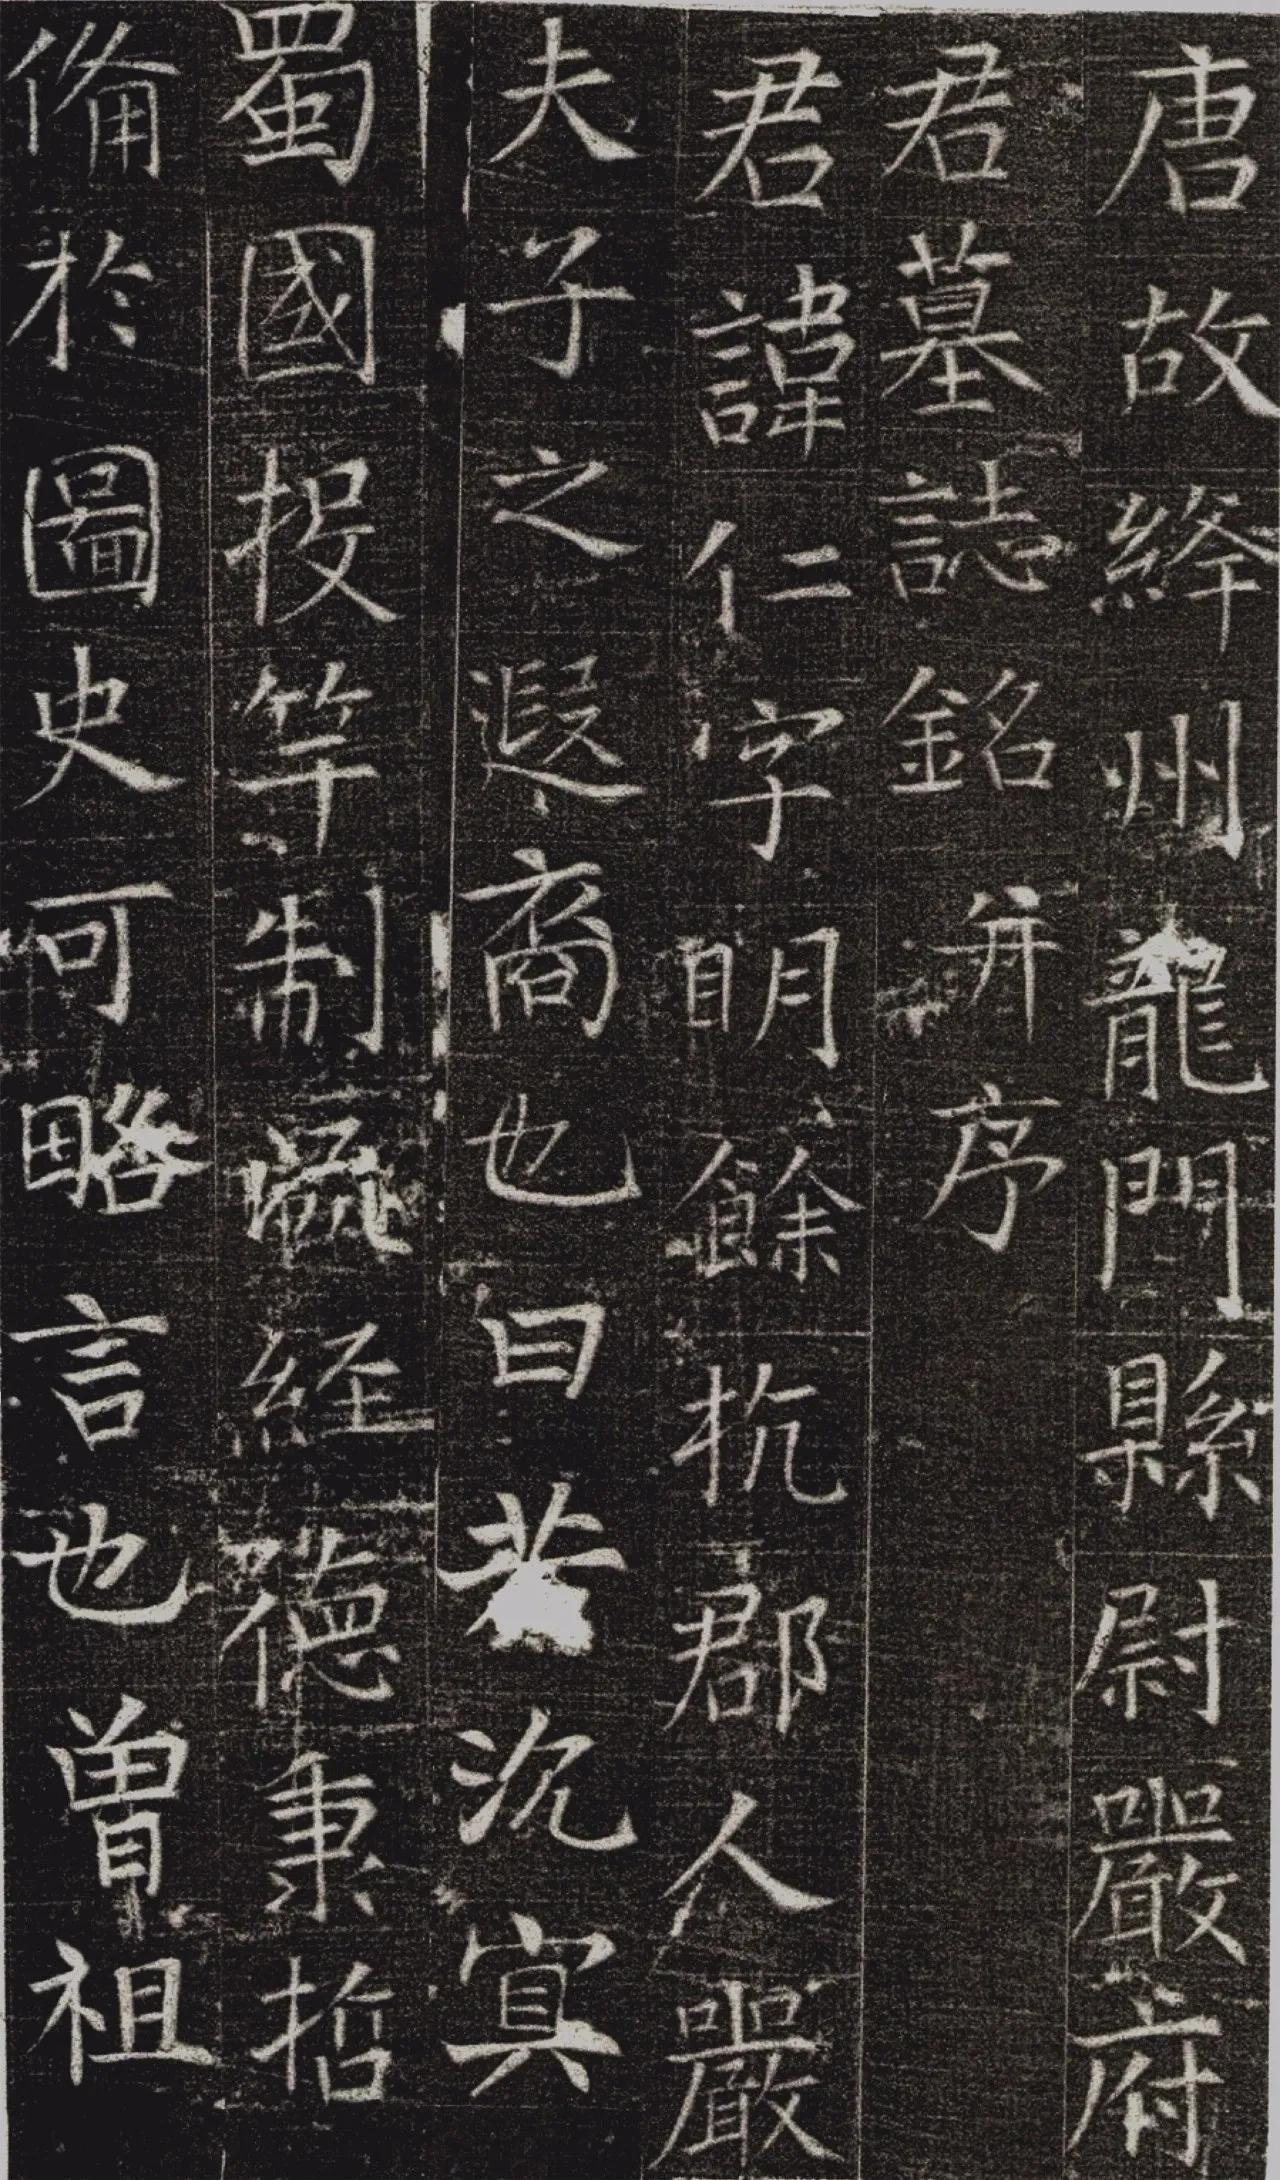 唐故絳州龍門縣尉嚴府
君墓誌銘并序
君諱仁字明餘杭郡人嚴
夫子之遐裔也曰若沉冥
蜀國投竿制爵經德秉哲
俻於圖史可略言也曽祖